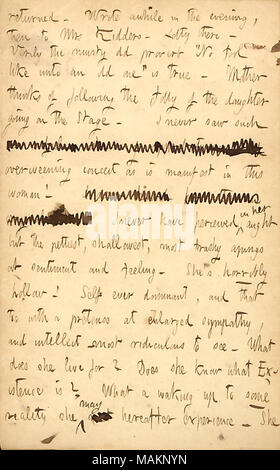 returned. Wrote awhile in the evening,
then to Mrs Kidders. Lotty there.
Verily the musty old proverb "No fool
like unto an old one" is true. Mother
thinks of following the folly of the daughter
going on the Stage. I never saw such
overweening conceit as is manifest in this
woman!
I never have perceived in her aught
but the pettiest, shallowest, most trashy apings
at sentiment and feeling. She's horribly
hollow! Self ever dominant, and that
too with a pretense at enlarged sympathy,
and intellect most ridiculous to see. What
does she live for? Does she know what Ex-
istence is? What a waking up to some
reality she may hereafter experience. She
alamy
Image ID: MAKNYN
www.alamy.com